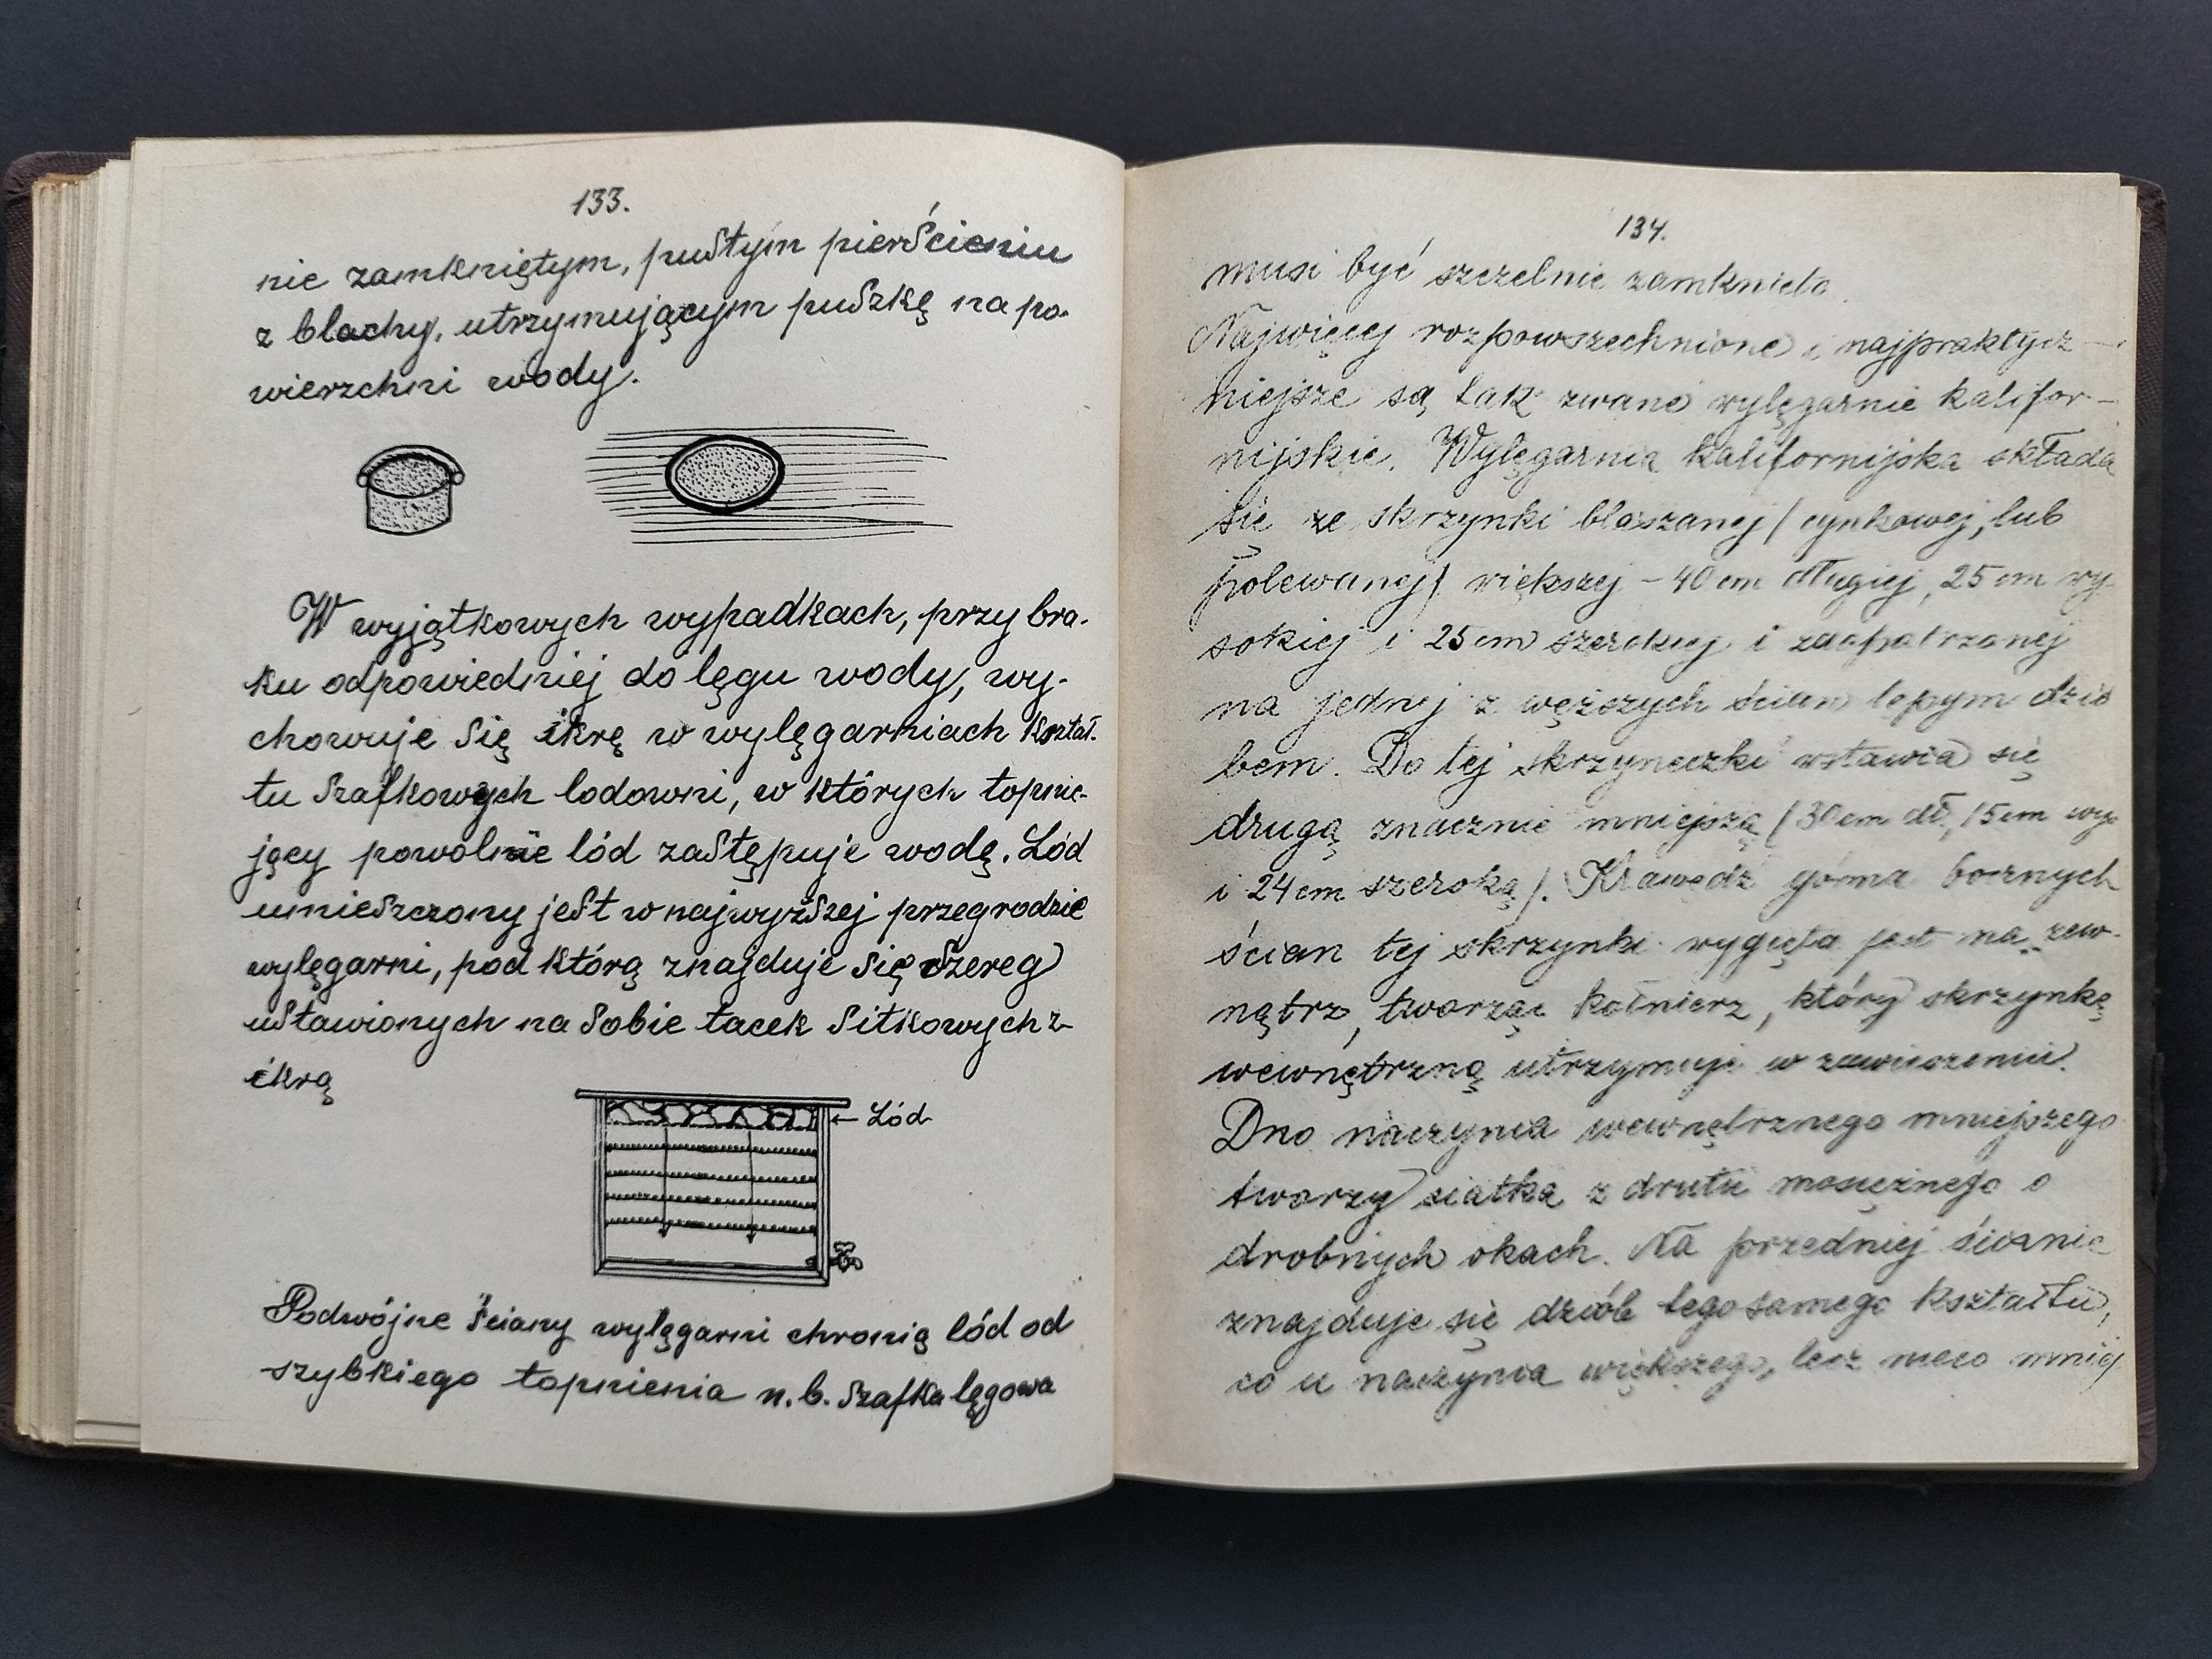 133.
nie zamkniętym, pustym pierścieniu
z blachy, utrzymującym puszkę na po-
wierzchni wody.
W wyjątkowych wypadkach, przy bra-
ku odpowiedniej do lęgu wody, wy-
chowuje się ikrę w wylęgarniach kształ-
tu szafkowych lodowni, w których topnie-
jący powolnie lód zastępuje wodę. Lód
umieszczony jest w najwyższej przegrodzie
wylęgarni, pod którą znajduje się szereg
ustawionych na sobie tacek sitkowych z
ikrą
← Lód
Podwójne ściany wylęgarni chronią lód od
szybkiego topnienia n.b. szafka lęgowa
134.
musi być szczelnie zamknięta.
Najwięcej rozpowszechnione i najpraktycz-
niejsze są tak zwane wylęgarnie kalifor-
nijskie. Wylęgarnia kalifornijska składa
się ze skrzynki blaszanej / cynkowej, lub
polewanej / większej - 40 cm długiej, 25 cm wy-
sokiej i 25 cm szerokiej i zaopatrzonej
na jednej z węższych ścian tępym dzió
bem. Do tej skrzyneczki wstawia się
drugą znacznie mniejszą / 30 cm dł, 15 cm wys
i 24 cm szeroką /. Krawędź górna bocznych
ścian tej skrzynki wygięta jest na zew-
nątrz, tworząc kołnierz, który skrzynkę
wewnętrzną utrzymuje w zawieszeniu.
Dno naczynia wewnętrznego mniejszego
tworzy siatka z drutu mosiężnego o
drobnych okach. Na przedniej ścianie
znajduje się dziób tego samego kształtu,
co u naczynia większego, lecz nieco mniej